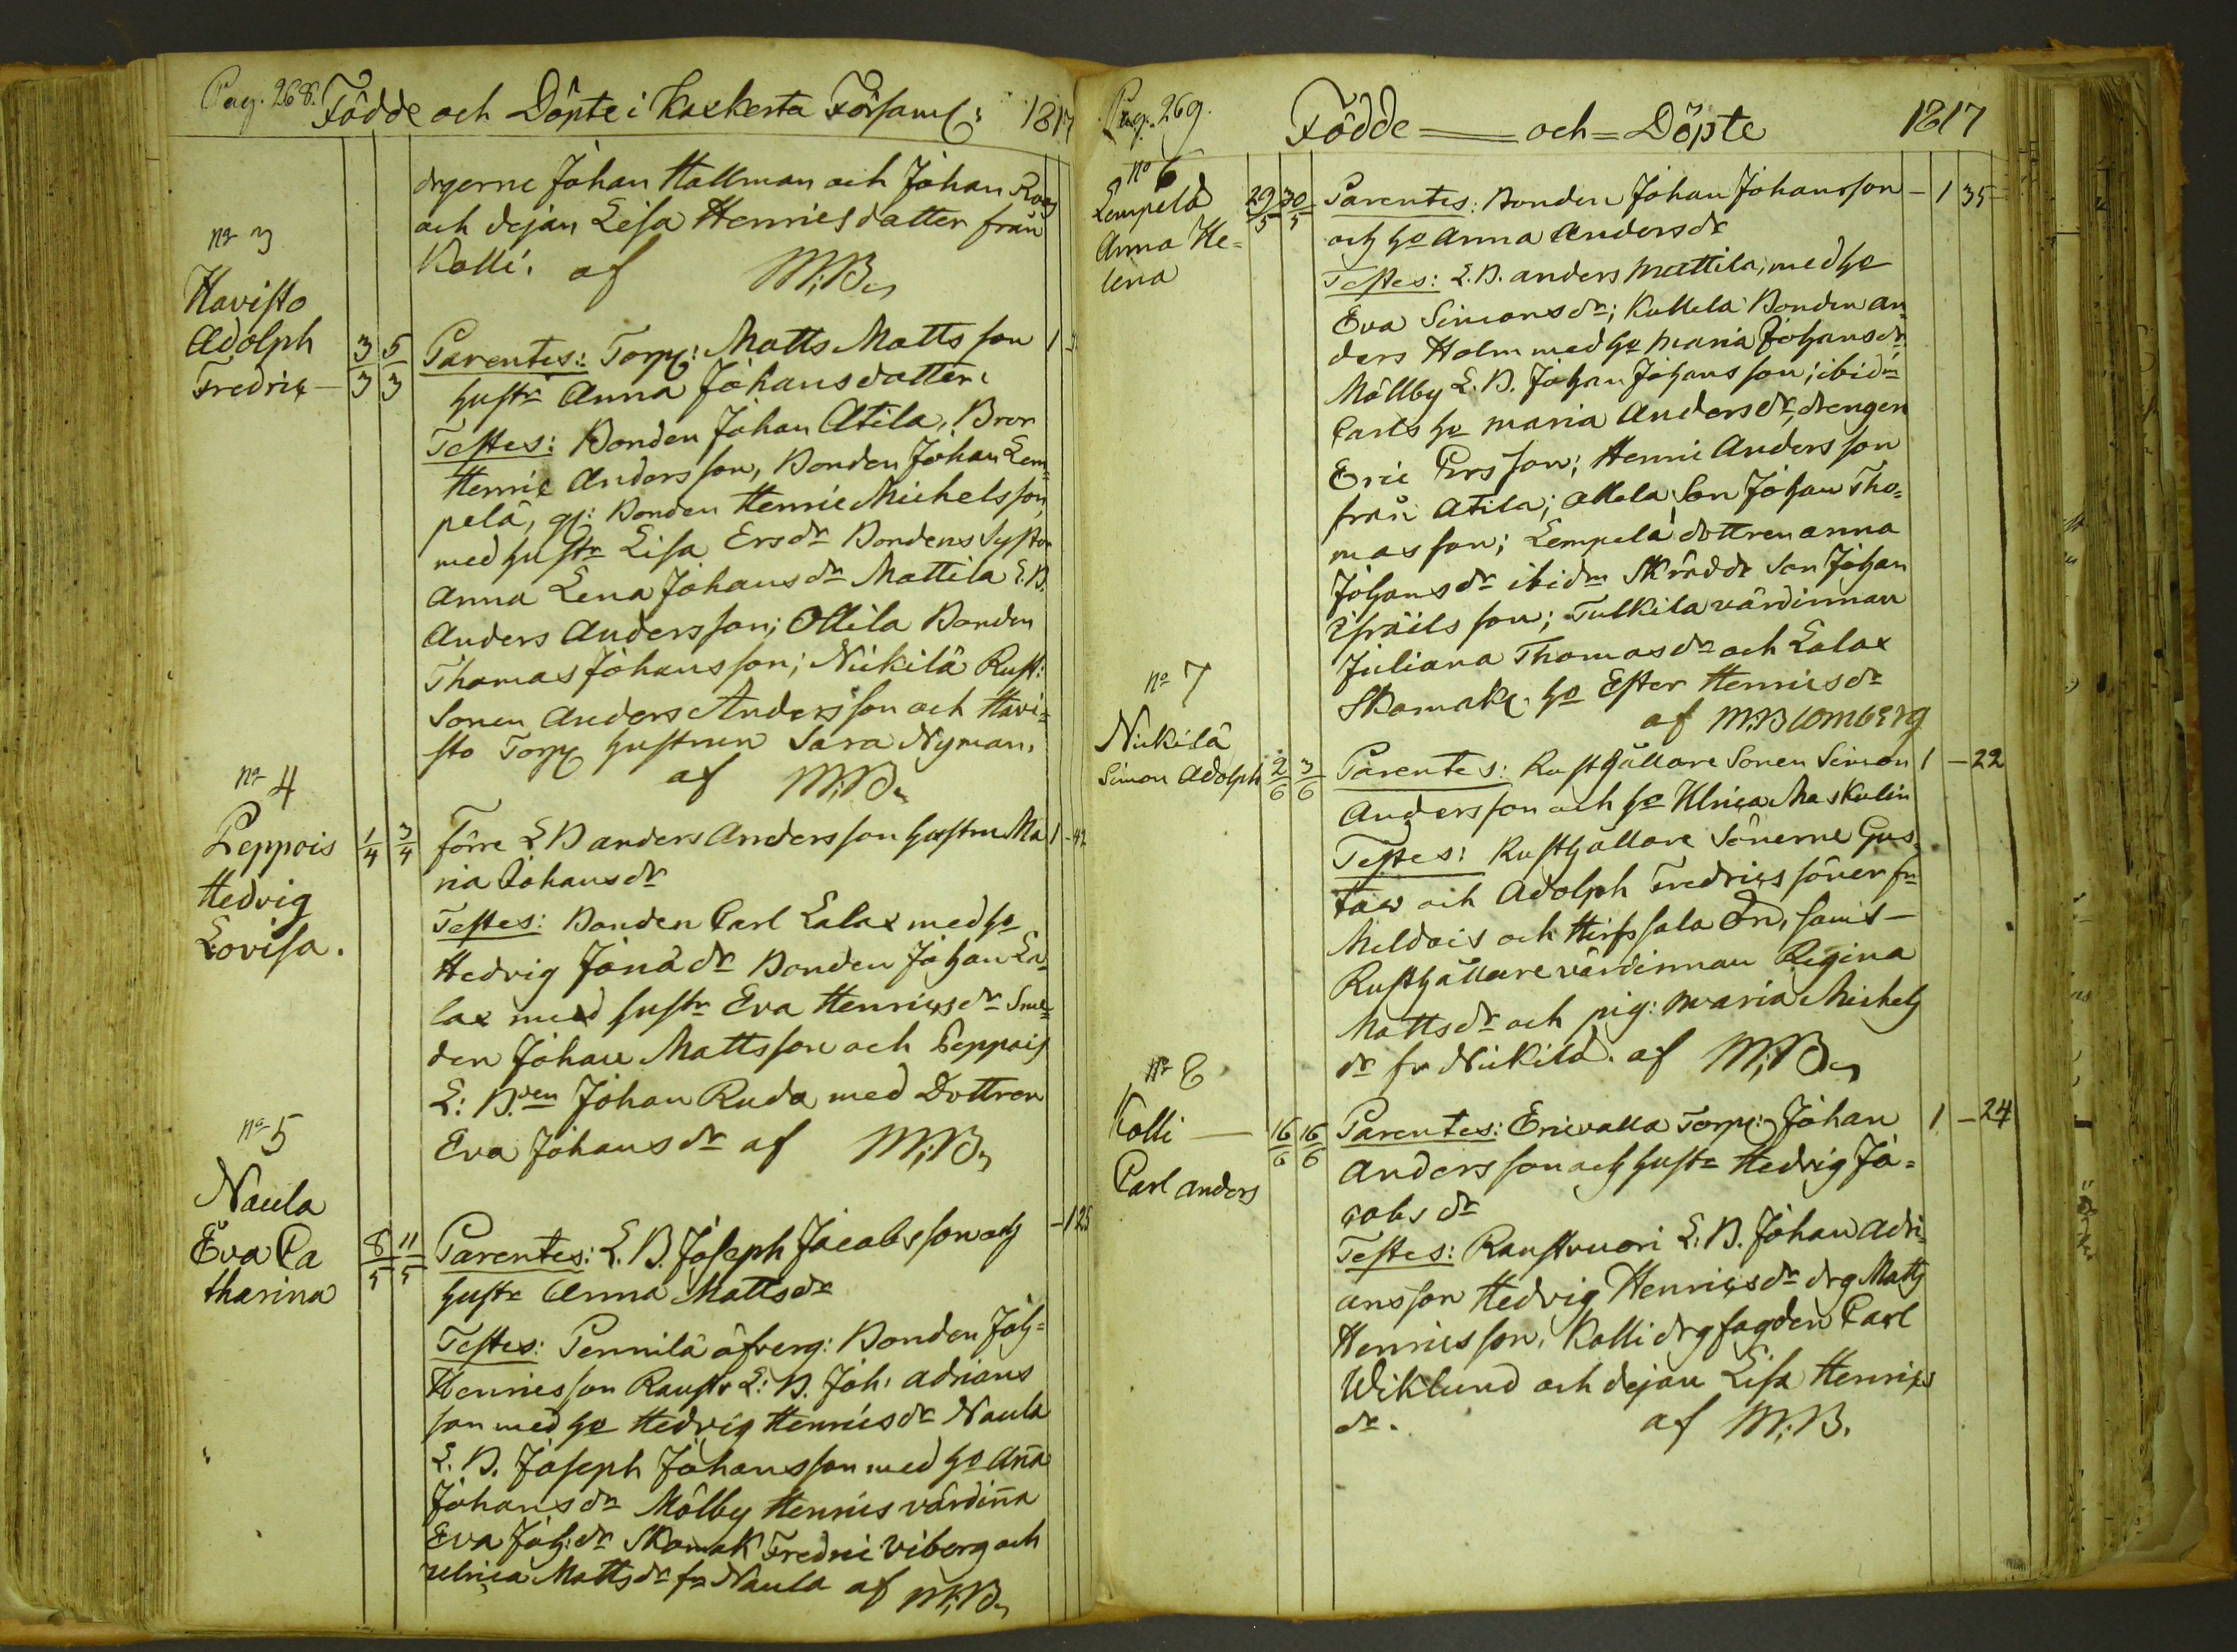 Pag. 268. Födde och Döpte i Kaxkerta Församl: 1817
drgerne Johan Hallman och Johan Roos
och dejan Lisa Henricsdatter från
Kolli. af M:B
No 3
Havisto
Adolph
Fredric — 3/3 5/3
Parentes: Torp: Matts Mattsson 1
hustr Anna Johansdatter.
Testes: Bonden Johan Atila, Bror
Henric Andersson, Bonden Johan Lem=
pelä, gl: Bonden Henric Michelsson,
med hustr Lisa Ersdr Bondens Syster
Anna Lena Johansdr Mattila L.B.
Anders Andersson; Ollila Bonden
Thomas Johansson; Niikilä Rust:
Sonen Anders Andersson och Havi=
sto Torp hustrun Sara Nyman.
af M:B
No 4
Peppois
Hedvig
Lovisa.
1/4 3/4 förre L B anders Andersson hustru Ma 1 - 42
ria Johansdr
Testes: Bonden Carl Lalax med ho
Hedvig Jonädr Bonden Johan La=
lax med hustr Eva Henricsdr Sme=
den Johan Mattsson och Peppois
L: B.den Johan Ruda med Dottren
Eva Johansdr af M:B
No 5
Naula
Eva Ca
tharina
8/5 11/5 Parentes: L.B. Joseph Jacobsson och - 1 25
hustr Anna Mattsdr
Testes: Pennilä öfverg: Bonden Joh=
Henricsson Raustv L: B. Joh: Adrians
son med ho Hedvig Henricsdr Naula
L. B. Joseph Johansson med ho Aña
Johansdr Mölby Henrics värdiña
Eva Joh:dr Skomak Fredric Viberg och
Ulrica Mattsdr fr Naula af M:B
Pag. 269. Födde — och = Döpte 1817
No 6
Lempelä
Anna He=
lena
29/5 30/5 Parentes: Bonden Johan Johansson - 1 35
och ho Anna Andersdr
Testes: L.B. Anders Mattila, med ho
Eva Simonsdr; Kullela Bonden An
ders Holm med ho Maria Johansdr
Möllby L. B. Johan Johansson; ibidm
Carls ho Maria Andersdr, drengen
Eric Ersson; Henric Andersson
från Atila; Ollila Son Johan Tho=
masson; Lempelä dottren Anna
Johansdr ibidm Skrädd: Son Johan
Isräilsson; Tulkila värdinnan
Juliana Thomasdr och Lalax
Skomak. ho Ester Henricsdr
af M:Blomberg
No 7
Niikilä
Simon Adolph 2/6 3/6
Parentes: Rusthållare Sonen Simon 1 - 22
Andersson och ho Ulrica Maskulin
Testes: Rusthållare Sönerne Gus=
taw och Adolph Fredrics söner fr
Meldois och Hirfssala Ön, samt —
Rusthållare värdinnan Regina
Mattsdr och pig: Maria Michels
dr fr Niikilä. af M:B
No 8
Kolli —
Carl Anders
16/6 16/6 Parentes: Ericvalla Torp: Johan 1 - 24
Andersson och hustr Hedvig Ja=
cobsdr
Testes: Raustvuori L: B. Johan Adri=
ansson Hedvig Henricsdr drg Matts
Henricsson. Kolli drg fogden Carl
Wiklund och dejan Lisa Henrics
dr. af M:B.